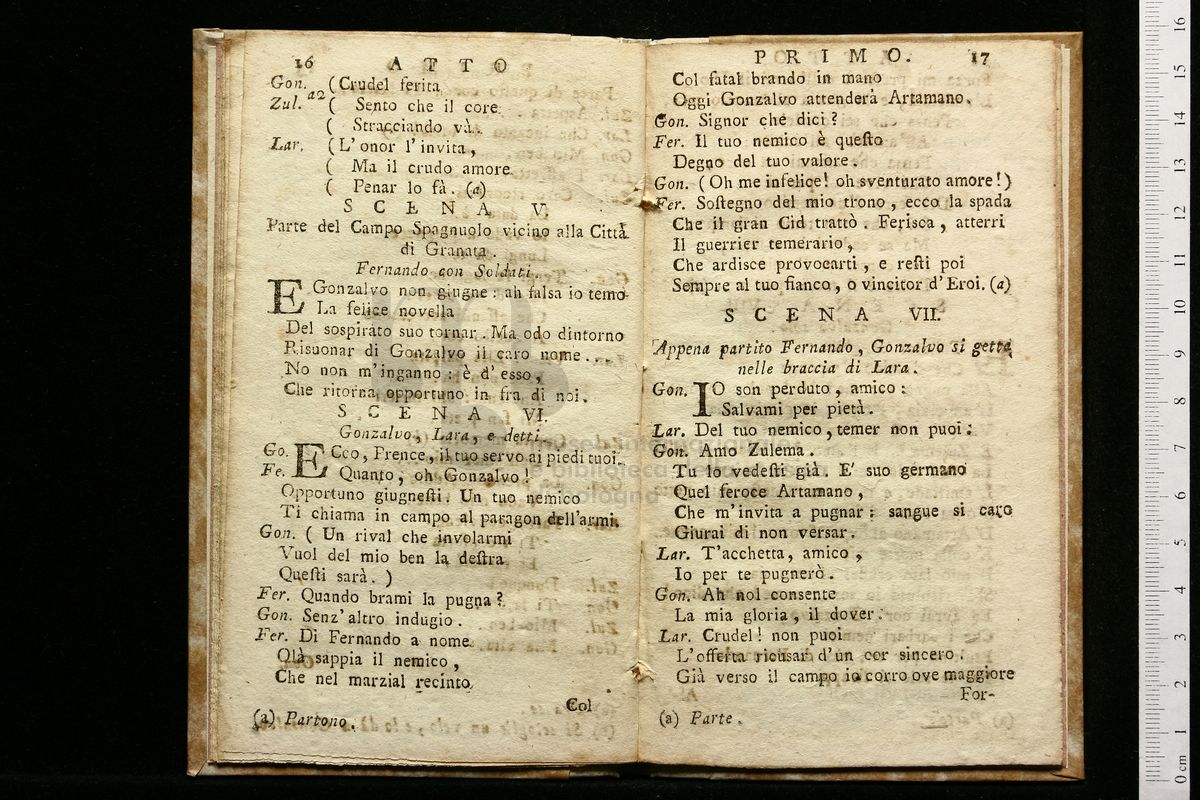 16 ATTO
Gon. (Crudel ferita
Zul. a2 ( Sento che il core
( Stracciando và.
Lar. (L'onor l'invita,
( Ma il crudo amore
( Penar lo fà. (a)
SCENA V.
Parte del Campo Spagnuolo vicino alla Città
di Granata.
Fernando con Soldati.
E Gonzalvo non giugne: ah falsa io temo
La felice novella
Del sospirato suo tornar. Ma odo dintorno
Risuonar di Gonzalvo il caro nome....
No non m'inganno: è d'esso,
Che ritorna opportuno in fra di noi.
SCENA VI.
Gonzalvo, Lara, e detti.
Go. ECco, Prence, il tuo servo ai piedi tuoi.
Fe. Quanto, oh Gonzalvo!
Opportuno giugnesti. Un tuo nemico
Ti chiama in campo al paragon dell'armi.
Gon. ( Un rival che involarmi
Vuol del mio ben la destra
Questi sarà. )
Fer. Quando brami la pugna?
Gon. Senz'altro indugio.
Fer. Di Fernando a nome
Olà sappia il nemico,
Che nel marzial recinto
Col
(a) Partono.
PRIMO. 17
Col fatal brando in mano
Oggi Gonzalvo attenderà Artamano.
Gon. Signor che dici?
Fer. Il tuo nemico è questo
Degno del tuo valore.
Gon. (Oh me infelice! oh sventurato amore!)
Fer. Sostegno del mio trono, ecco la spada
Che il gran Cid trattò. Ferisca, atterri
Il guerrier temerario,
Che ardisce provocarti, e resti poi
Sempre al tuo fianco, o vincitor d'Eroi. (a)
SCENA VII.
Appena partito Fernando, Gonzalvo si getta
nelle braccia di Lara.
Gon. IO son perduto, amico:
Salvami per pietà.
Lar. Del tuo nemico, temer non puoi:
Gon. Amo Zulema.
Tu lo vedesti già. E' suo germano
Quel feroce Artamano,
Che m'invita a pugnar: sangue si caro
Giurai di non versar.
Lar. T'acchetta, amico,
Io per te pugnerò.
Gon. Ah nol consente
La mia gloria, il dover.
Lar. Crudel! non puoi
L'offerta ricusar d'un cor sincero.
Già verso il campo io corro ove maggiore
For-
(a) Parte.